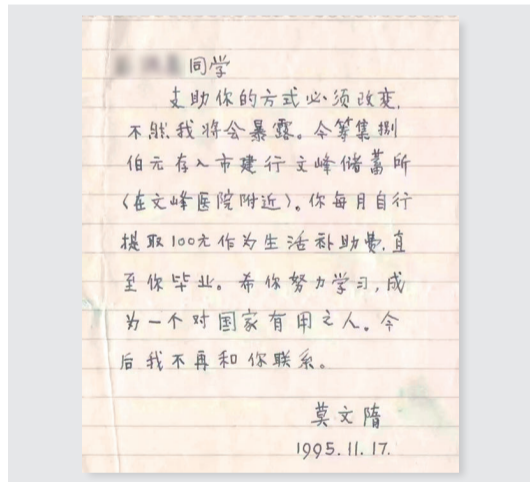 同学
支助你的方式必须改变,
不然我将会暴露。今筹集捌
佰元存入市建行文峰储蓄所
(在文峰医院附近)。你每月自行
提取100元作为生活补助费,直
至你毕业。希你努力学习,成
为一个对国家有用之人。今
后我不再和你联系。
莫文隋
1995.11.17.